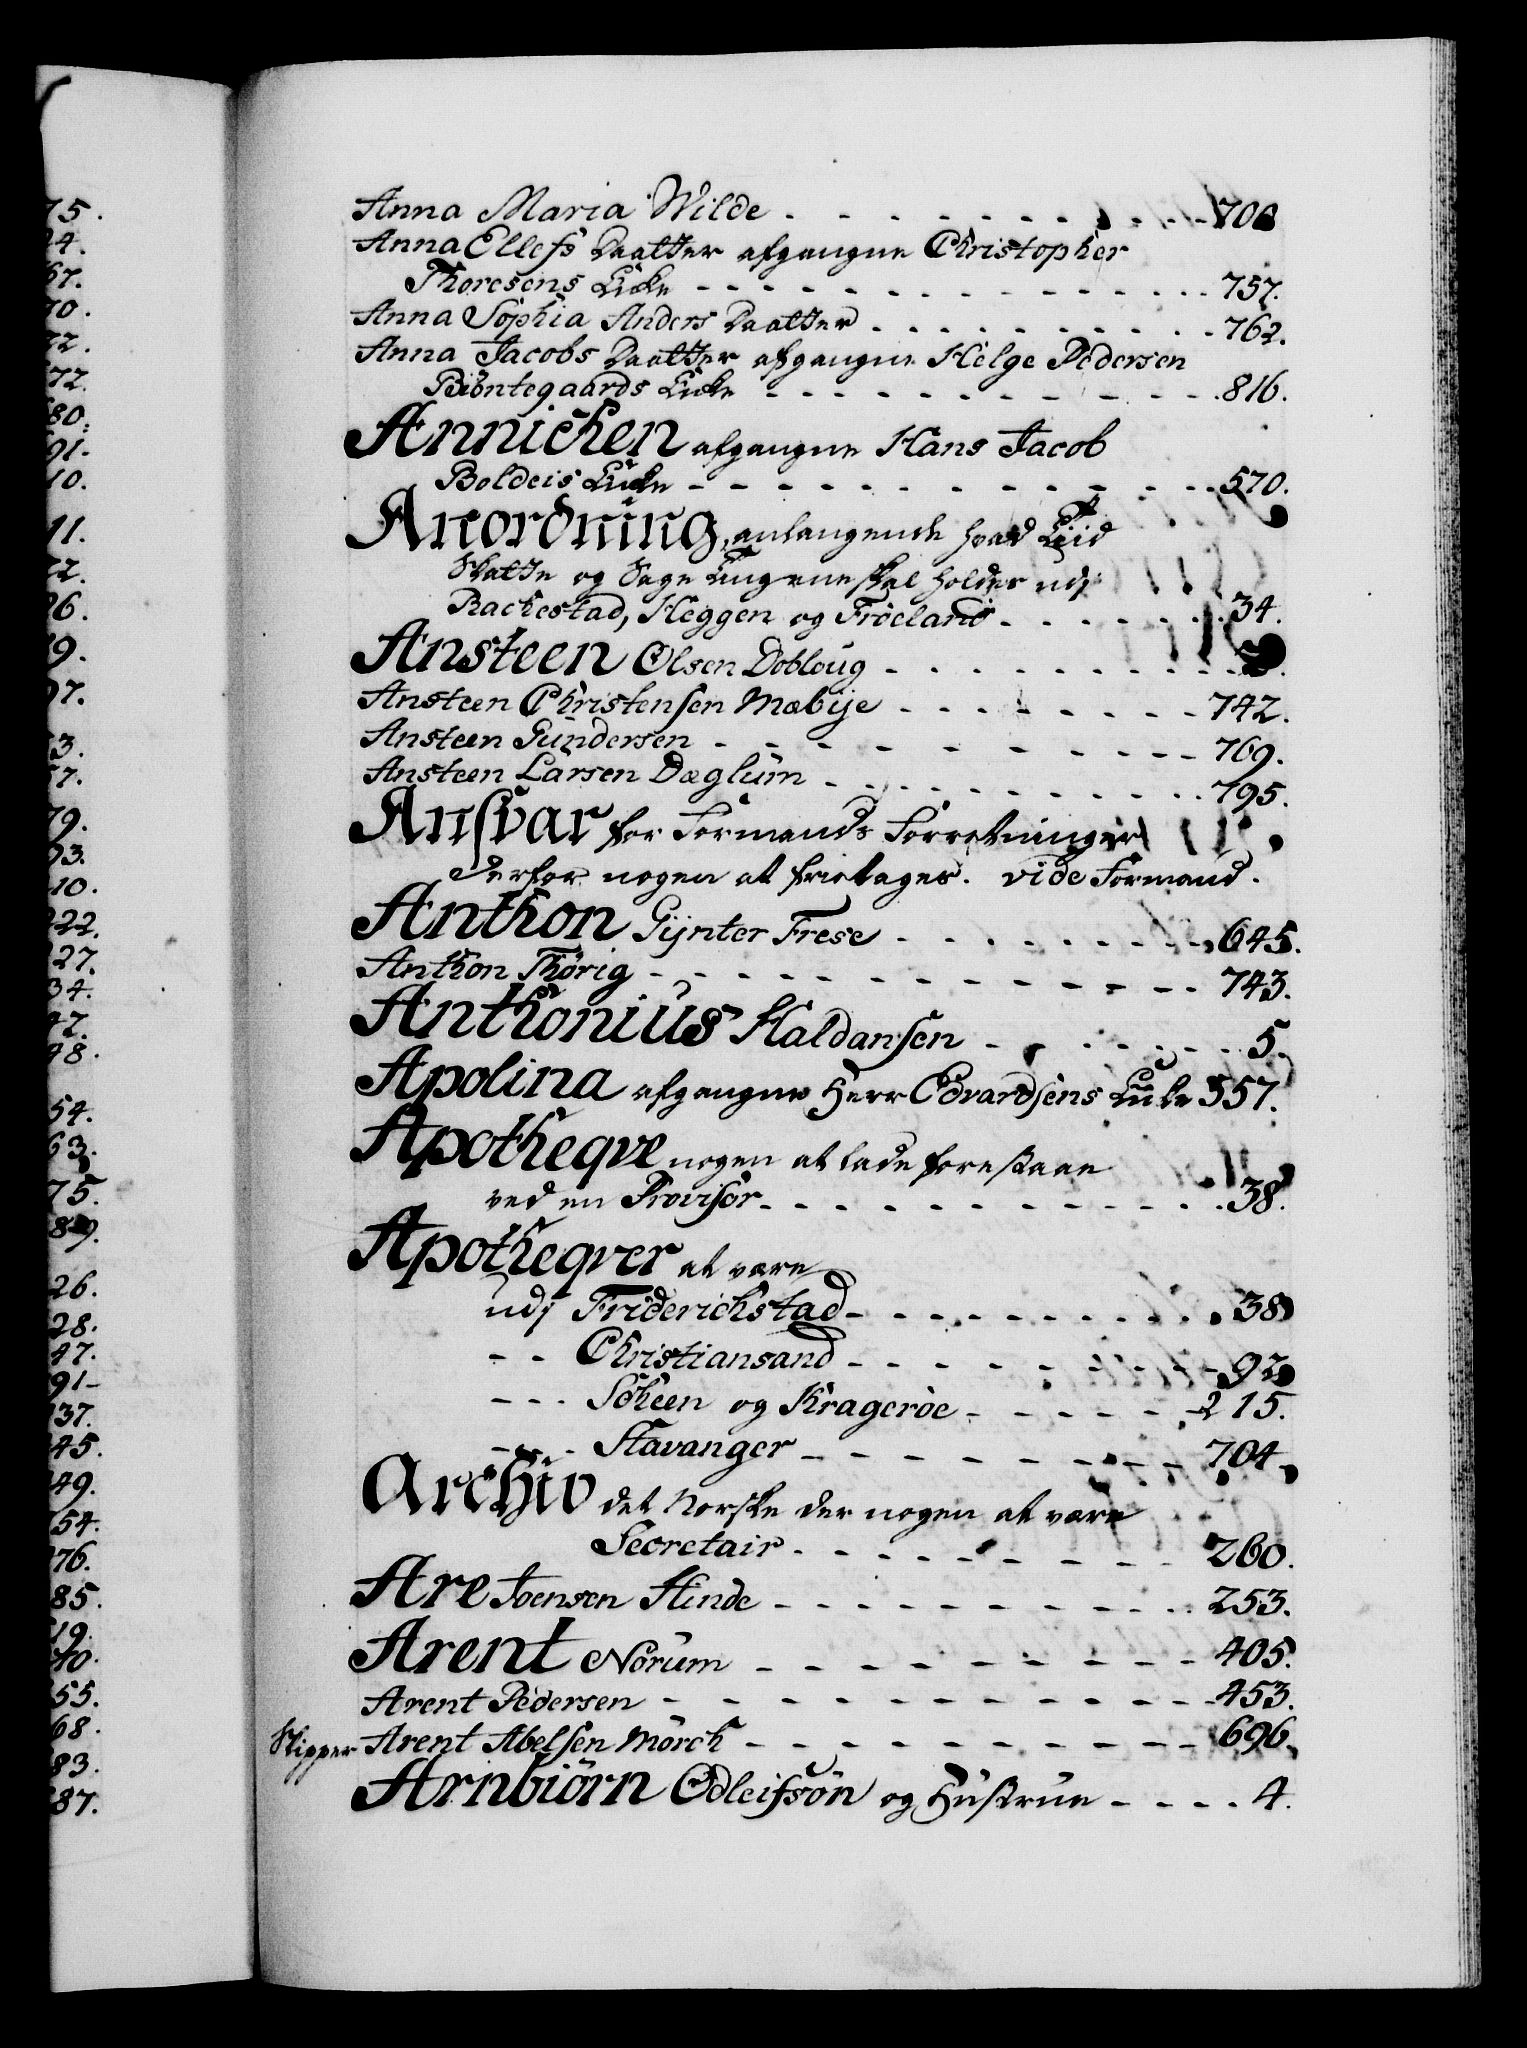 75.
24.
67.
70.
72.
72.
80.
91.
10.
11.
22.
26.
29.
97.
53.
57.
79.
93.
10.
222.
27.
34.
42.
48.
54.
63.
75.
89.
26.
28.
47.
91-
37.
45.
49.
54.
76.
85.
19.
40.
55.
68.
83.
87.
Anna Maria Wilde - - - 70
Anna Ellefs Daatter afgangne Christopher
Thoresens Encke - - - 757.
Anna Sophia Anders Daatter - - - 762.
Anna Jacobs Daatter afgangne Helge Pedersen
Biöntegaards Encke - - - 816.
Annichen afgangne Hans Jacob
Boldeis Encke - - - 570.
Anordning, anlangende hvad Tiid
Skatte og Sage Tingene skal holdes udj
Rackestad, Heggen og Fröeland - - - 34.
Ansteen Olsen Dobloug - - -
Ansteen Christensen Mæbije - - - 742.
Ansteen Gundersen - - - 769.
Ansteen Larsen Dæglum - - - 795.
Ansvar for Formands Forretninger
derfor nogen at fritages. vide Formand.
Anthon Gijnter Frese - - - 645.
Anthon Thörig - - - 743.
Anthonius Haldansen - - - 5.
Apolina afgangne Herr Edvardsens Encke 557.
Apotheqve nogen at lade forestaae
ved en Provisor - - - 38.
Apotheqver at være
udj Friderichstad - - - 38
- - Christiansand - - - 92
- - - Scheen og Kragerøe - - - 215.
- - - Stavanger - - - 704.
Archiv det Norske der nogen at være
Secretair - - - 260.
Are Joensen Hinde - - - 253.
Arent Norum - - - 405.
Arent Pedersen - - - 453.
Skipper Arent Abelsen Mörch - - - 696.
Arnbiörn Odleifsön og Hustrue - - - 4.